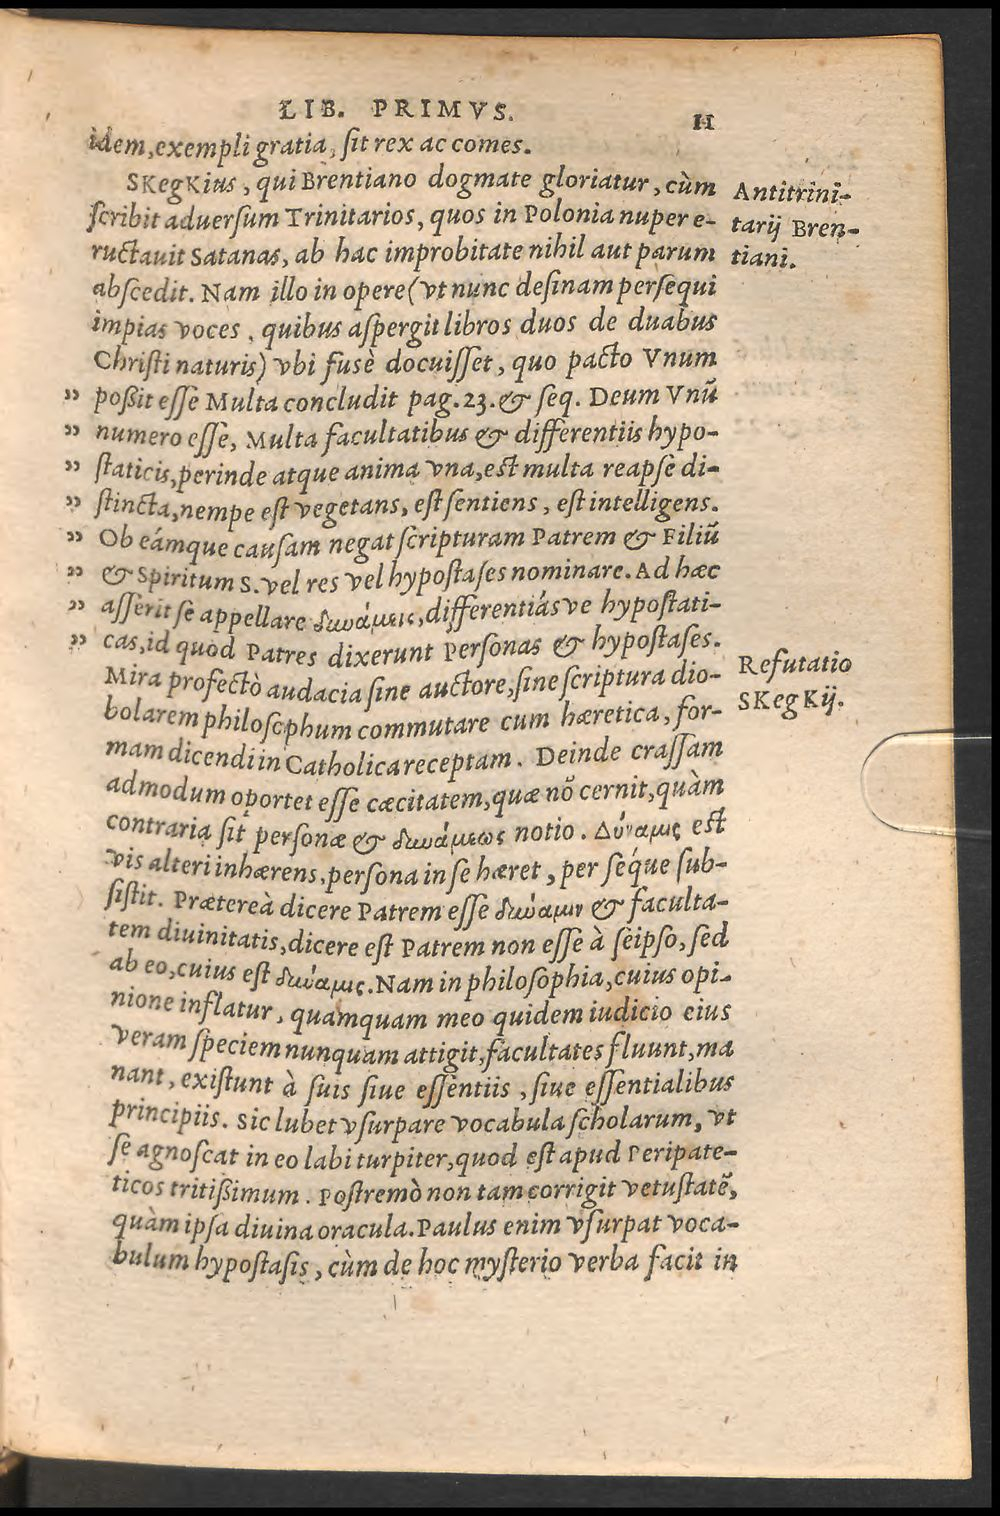 LIB. PRIMVS. 11
idem, exempli gratia, ſit rex ac comes.
SKegKius, qui Brentiano dogmate gloriatur, cùm
ſcribit aduerſum Trinitarios, quos in Polonia nuper e-
ructauit Satanas, ab hac improbitate nihil aut parum
abſcedit. Nam illo in opere (vt nunc deſinam perſequi
impias voces, quibus aſpergit libros duos de duabus
Chriſti naturis) vbi fusè docuiſſet, quo pacto Vnum
” poßit eſſe Multa concludit pag. 23. & ſeq. Deum Vnũ
” numero eſſe, Multa facultatibus & differentiis hypo-
” ſtaticis, perinde atque anima vna, eſt multa reapſe di-
” ſtincta, nempe eſt vegetans, eſt ſentiens, eſt intelligens.
” Ob eámque cauſam negat ſcripturam Patrem & Filiũ
” & Spiritum S. vel res vel hypoſtaſes nominare. Ad hæc
” aſſerit ſe appellare δυνάμεις, differentiásve hypoſtati-
” cas, id quod Patres dixerunt Perſonas & hypoſtaſes.
Mira profectò audacia ſine auctore, ſine ſcriptura dio-
bolarem philoſophum commutare cum hæretica, for-
mam dicendi in Catholica receptam. Deinde craſſam
admodum oportet eſſe cæcitatem, quæ nõ cernit, quàm
contraria ſit perſonæ & δυνάμεως notio. Δύναμις eſt
vis alteri inhærens, perſona in ſe hæret, per ſéque ſub-
ſiſtit. Prætereà dicere Patrem eſſe δύναμιν & faculta-
tem diuinitatis, dicere eſt Patrem non eſſe à ſeipſo, ſed
ab eo, cuius eſt δύναμις. Nam in philoſophia, cuius opi-
nione inflatur, quamquam meo quidem iudicio eius
veram ſpeciem nunquam attigit, facultates fluunt, ma
nant, exiſtunt à ſuis ſiue eſſentiis, ſiue eſſentialibus
principiis. Sic lubet vſurpare vocabula ſcholarum, vt
ſe agnoſcat in eo labi turpiter, quod eſt apud Peripate-
ticos tritißimum. Poſtremò non tam corrigit vetuſtatẽ,
quàm ipſa diuina oracula. Paulus enim vſurpat voca-
bulum hypoſtaſis, cùm de hoc myſterio verba facit in
Antitrini-
tarij Bren-
tiani.
Refutatio
SKegKij.